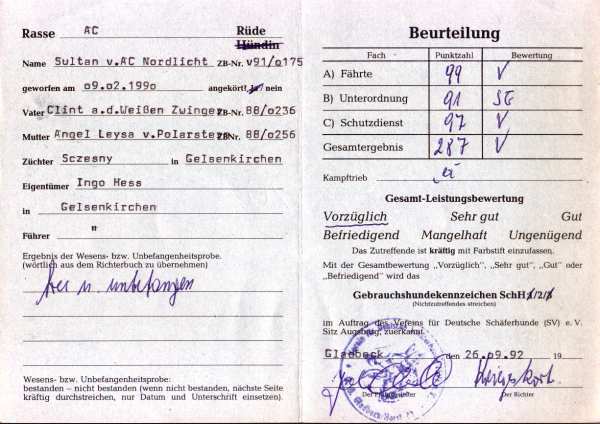 Rasse AC Rüde
Hündin
Name Sultan v.AC Nordlicht ZB-Nr. v91/o175
geworfen am o9.o2.199o angekört! ja/nein
Vater Clint a.d.Weißen Zwinger ZB-Nr. 88/o236
Mutter Angel Leysa v.Polarstern ZB-Nr. 88/o256
Züchter Sczesny in Gelsenkirchen
Eigentümer Ingo Hess
in Gelsenkirchen
Führer "
Ergebnis der Wesens- bzw. Unbefangenheitsprobe.
(wörtlich aus dem Richterbuch zu übernehmen)
frei u. unbefangen
Wesens- bzw. Unbefangenheitsprobe:
bestanden – nicht bestanden (wenn nicht bestanden, nächste Seite
kräftig durchstreichen, nur Datum und Unterschrift einsetzen).
Beurteilung
Fach Punktzahl Bewertung
A) Fährte 99 V
B) Unterordnung 91 SG
C) Schutzdienst 97 V
Gesamtergebnis 287 V
Kampftrieb
Gesamt-Leistungsbewertung
Vorzüglich Sehr gut Gut
Befriedigend Mangelhaft Ungenügend
Das Zutreffende ist kräftig mit Farbstift einzufassen.
Mit der Gesamtbewertung "Vorzüglich", "Sehr gut", "Gut" oder
"Befriedigend" wird das
Gebrauchshundekennzeichen SchH 1/2/3
(Nichtzutreffendes streichen)
im Auftrag des Vereins für Deutsche Schäferhunde (SV) e. V.
Sitz Augsburg, zuerkannt.
Gladbeck den 26.o9.92 19
Der Richter